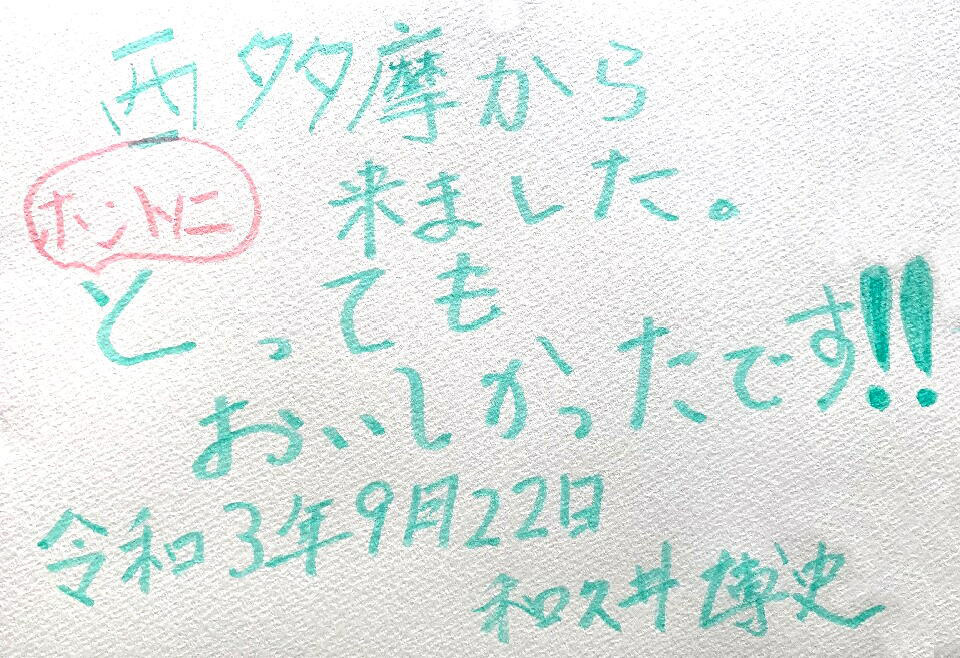 西多摩から
来ました。
ホントニ
とっても
おいしかったです!!
令和3年9月22日
和久井博史